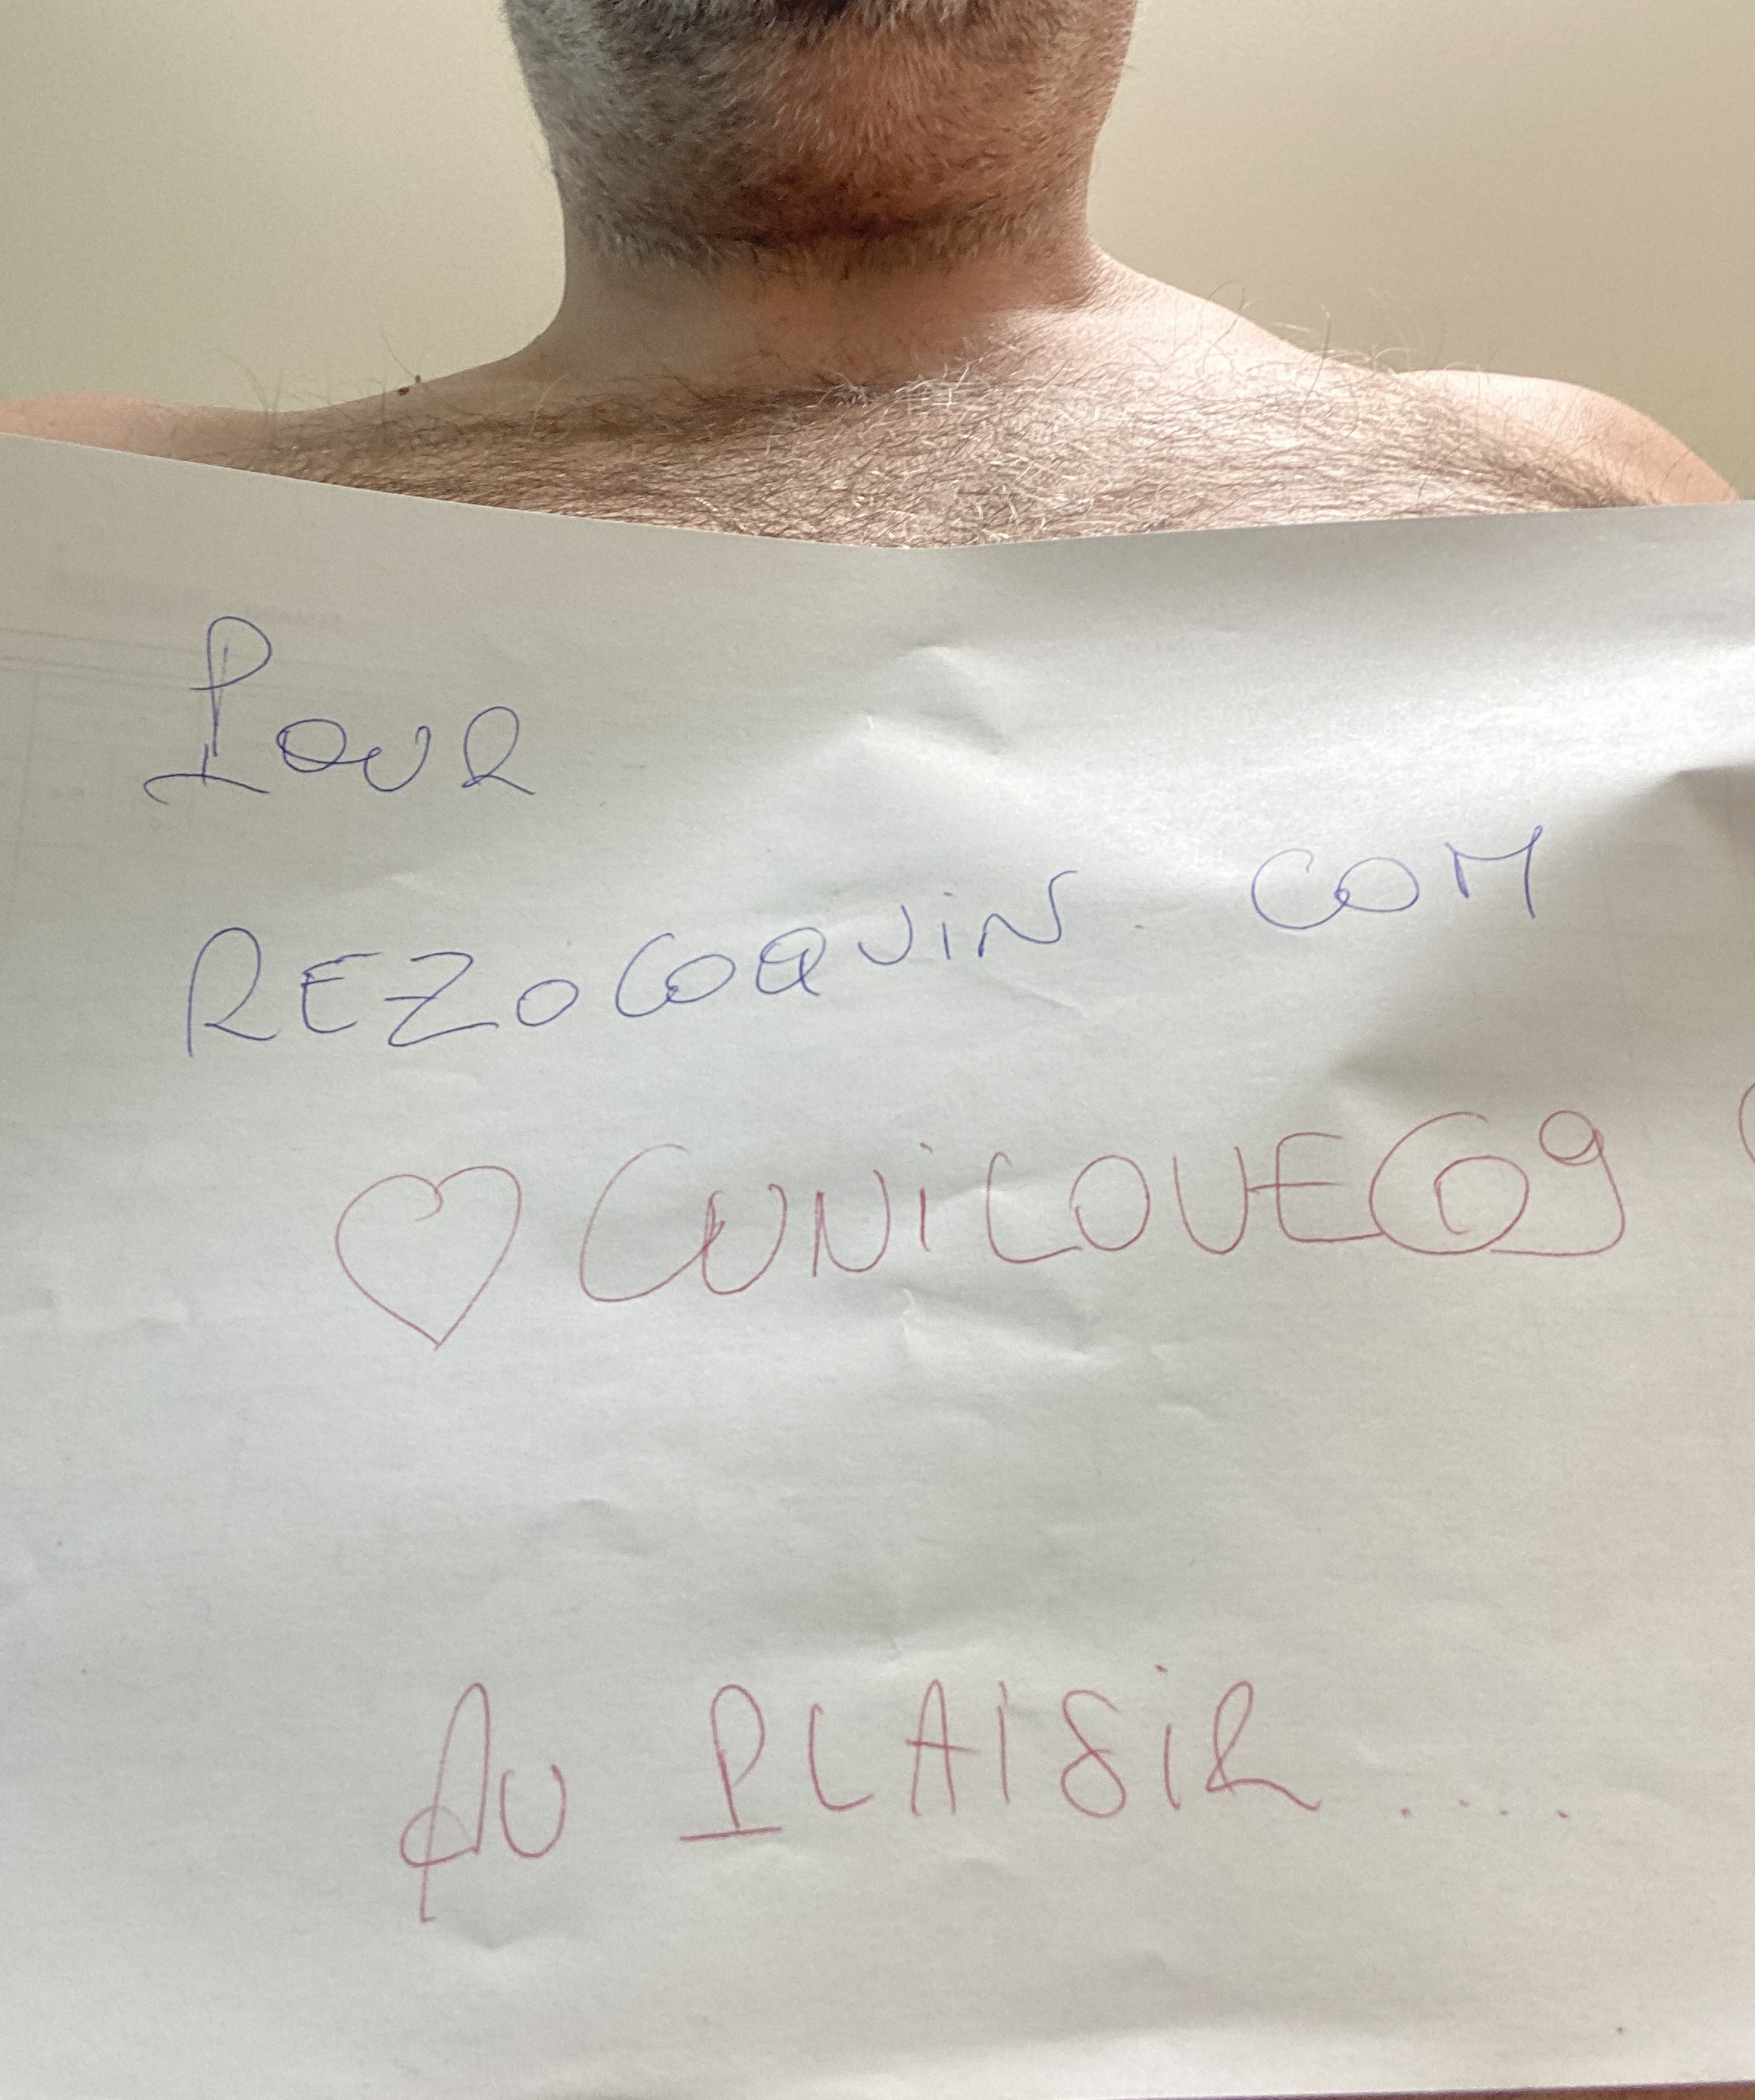 POUR
REZOCOQUiN.COM
♡ CUNiLOVE69
AU PLAISiR.....